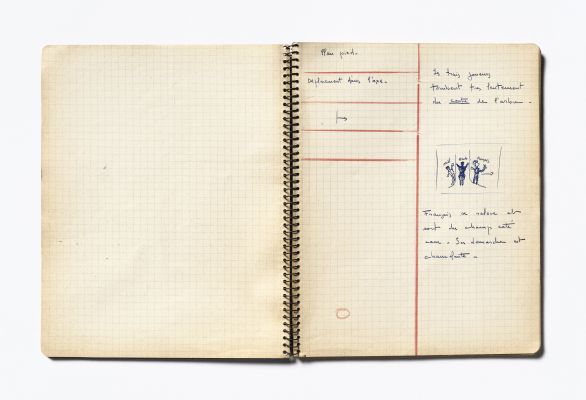 Plan pied.
Déplacement dans l'axe.
Les trois joueurs
tombent très lentement
du centre de l'arbre.
François se relève et
sort du champ côté
cour. Sa démarche est
chaude.